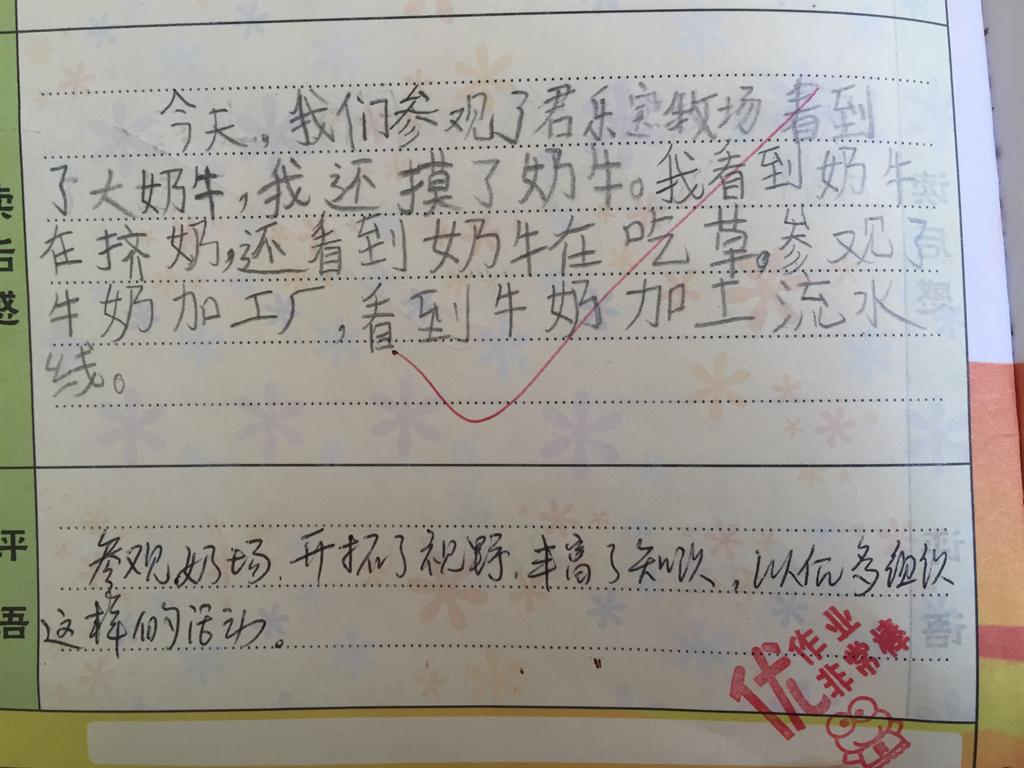 今天,我们参观了君乐宝牧场看到
了大奶牛,我还摸了奶牛。我看到奶牛
在挤奶,还看到奶牛在吃草。参观了
牛奶加工厂,看到牛奶加工流水
线。
读后感
参观奶场,开拓了视野,丰富了知识,以后多组织
这样的活动。
评语
优作业非常棒